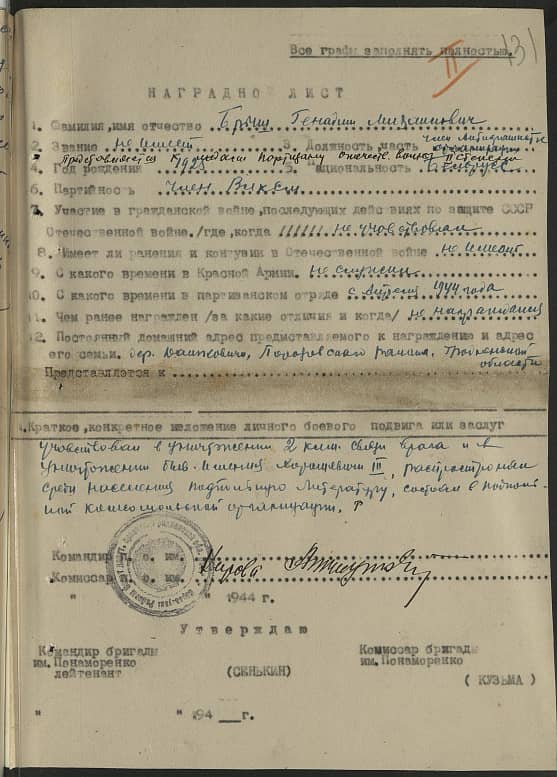 Все графы заполнять полностью.
II 131
НАГРАДНО ЛИСТ
1. Фамилия, имя отчество Геннадий
2. Звание не имеет 3. Должность, часть член антифашистск организации
Представляется к медали Партизану отечеств. войны II степени
4. Год рождения 1925 5. Национальность Беларус
6. Партийность Член ВЛКСМ
7. Участие в гражданской войне, последующих действиях по защите СССР
Отечественной войне. /где, когда ////// не участвовал
8. Имеет ли ранения и контузии в Отечественной войне не имеет
9. С какого времени в Красной Армии. не служил
10. С какого времени в партизанском отряде с Апреля 1944 года
11. Чем ранее награжден /за какие отличия и когда/ не награждался
12. Постоянный домашний адрес представляемого к награждению и адрес
его семьи. дер. района, Гродненской
области
Представляется к
1. Краткое, конкретное изложение личного боевого подвига или заслуг
Участвовал в уничтожении 2 клм. связи врага и в
уничтожении быв. имения III, распространял
среди населения подпольную литературу, состоял в подполь-
ной комсомольской организации.
Командир п. о. им. Кирова
Комиссар п. о. им.
" " 1944 г.
Утверждаю
Командир бригады
им. Понаморенко
лейтенант (СЕНЬКИН)
Комиссар бригады
им. Понаморенко
( КУЗЬМА )
" " 194 г.